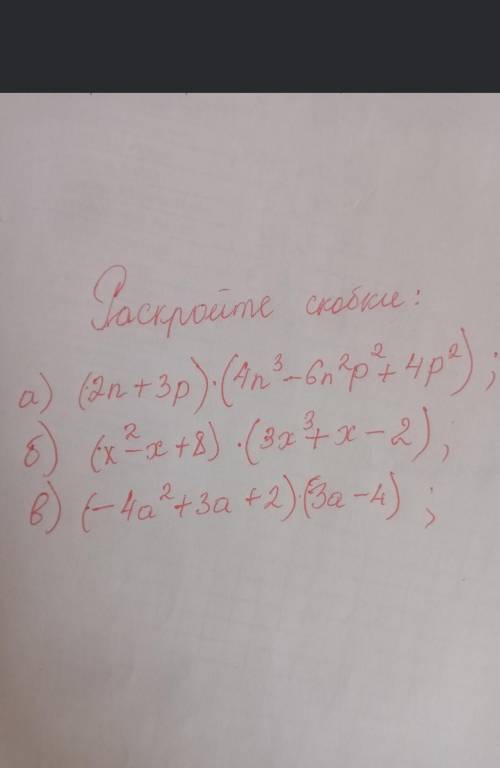 Раскройте скобки:
а) (2n + 3p)·(4n³ - 6n²p² + 4p²);
б) (x² - x + 8)·(3x³ + x - 2);
в) (-4a² + 3a + 2)·(3a - 4);